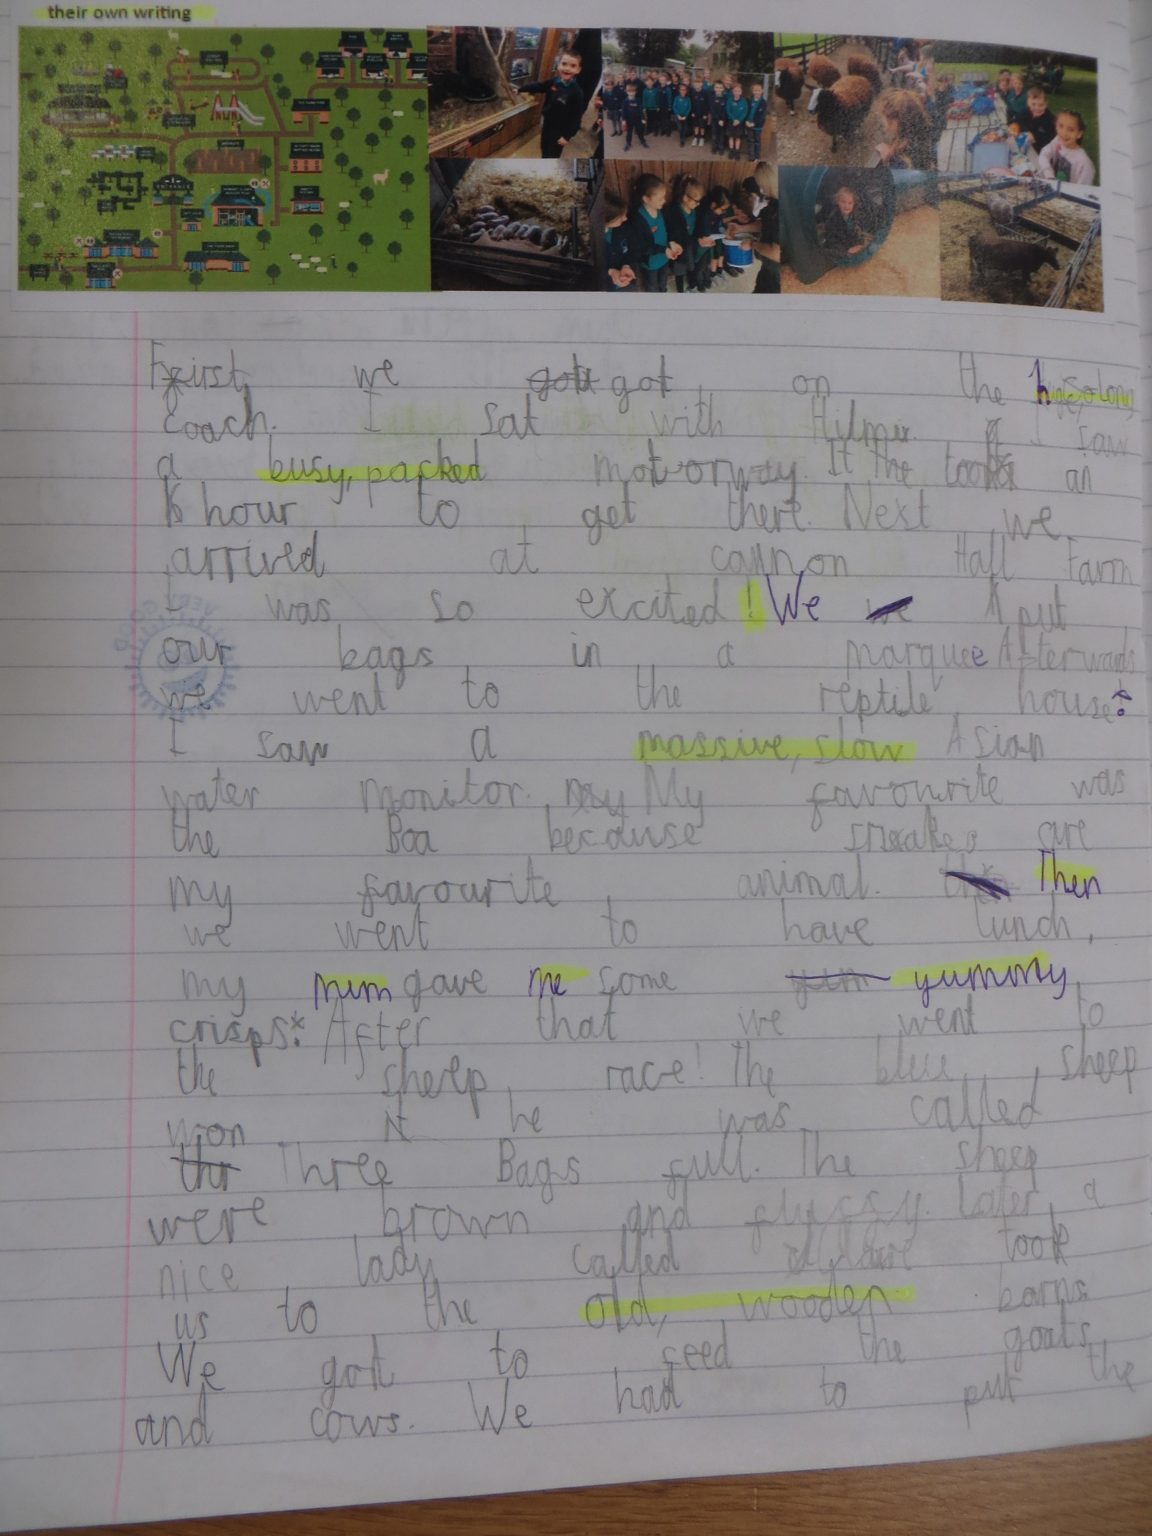 their own writing
ENTRANCE
First we got on the
Coach. I sat with I saw
a busy, packed motorway. It the took an
hour to get there. Next we
arrived at cannon Hall Farm
I was so excited! We put
our bags in a marquee Afterwards
we went to the reptile house.
I saw a massive, slow Asian
water monitor. My favourite was
the Boa because snakes are
my favourite animal. Then
we went to have lunch,
my mum gave me some yummy
crisps. After that we went to
the sheep race! The blue sheep
won he was called
Three Bags full. The sheep
were brown and fluffy. Later a
nice lady called took
us to the old, wooden barns.
We got to feed the goats
and cows. We had to put the
VERY GOOD